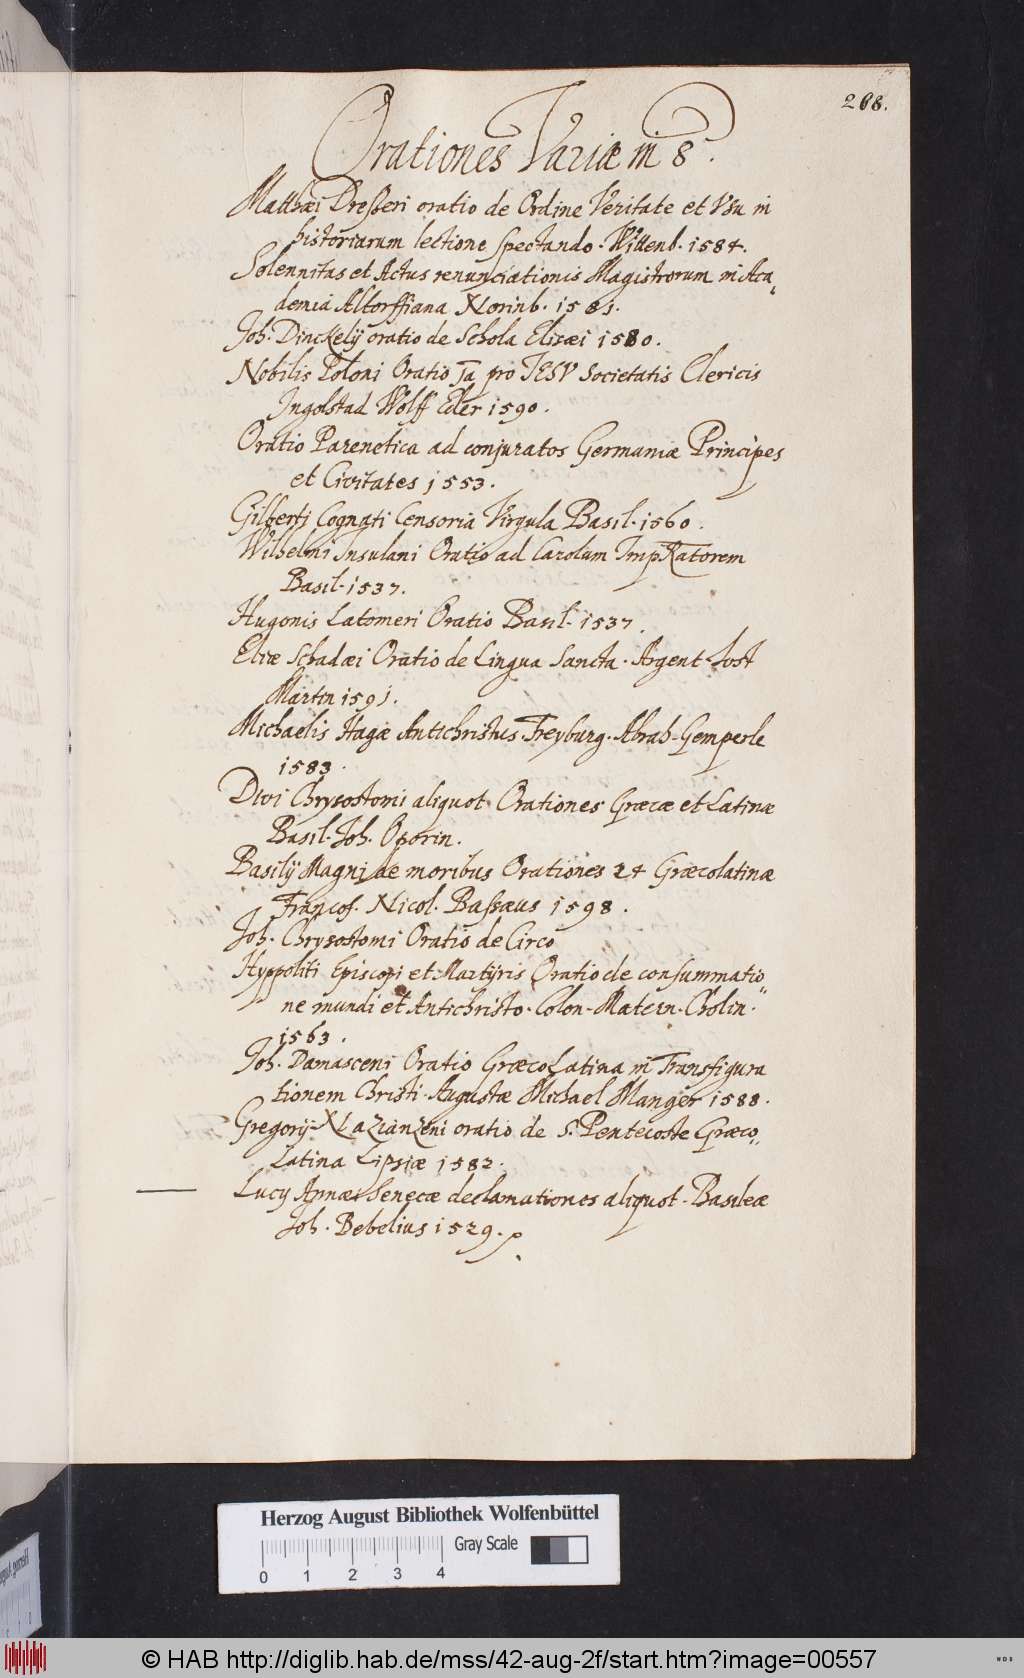 268.
Orationes Variæ in 8°.
Matthæi Dreßeri oratio de Ordine Veritate et Vsu in
historiarum lectione spectando. Wittenb. 1584.
Solennitas et Actus renunciationis Magistrorum in Aca„
demia Altorffiana Norinb. 1581.
Joh. Dinckelÿ oratio de Schola Elisæi 1580.
Nobilis Poloni Oratio 1a pro IESV Societatis Clericis
Ingolstad Wolff Eder 1590.
Oratio Parenetica ad conjuratos Germaniæ Principes
et Civitates 1553.
Gilberti Cognati Censoria Virgula Basil. 1560.
Wilhelmi Insulani Oratio ad Carolum ImpRatorem
Basil. 1537.
Hugonis Latomeri Oratio Basil. 1537.
Eliæ Schadæi Oratio de Lingua Sancta. Argent. Jost
Martin 1591.
Michaelis Hagæ Antichristus. Freyburg. Abrah. Gemperle
1583.
Divi Chrysostomi aliquot Orationes Græcæ et Latinæ
Basil. Joh. Oporin.
Basilÿ Magni de moribus Orationes 24 Græcolatinæ
Francof. Nicol. Baßæus 1598.
Joh. Chrysostomi Oratio de Circo
Hyppoliti Episcopi et Martÿris Oratio de consummatio„
ne mundi et Antichristo. Colon. Matern. Cholin.
1563.
Joh. Damasceni Oratio GræcoLatina in Transfigura
tionem Christi. Augustæ Michael Manger 1588.
Gregorÿ Nazianzeni oratio de S. Pentecoste Græco„
Latina Lipsiæ 1582.
Lucÿ Annæi Senecæ declamationes aliquot. Basileæ
Joh. Bebelius 1529.
Herzog August Bibliothek Wolfenbüttel
Gray Scale
0 1 2 3 4
© HAB http://diglib.hab.de/mss/42-aug-2f/start.htm?image=00557